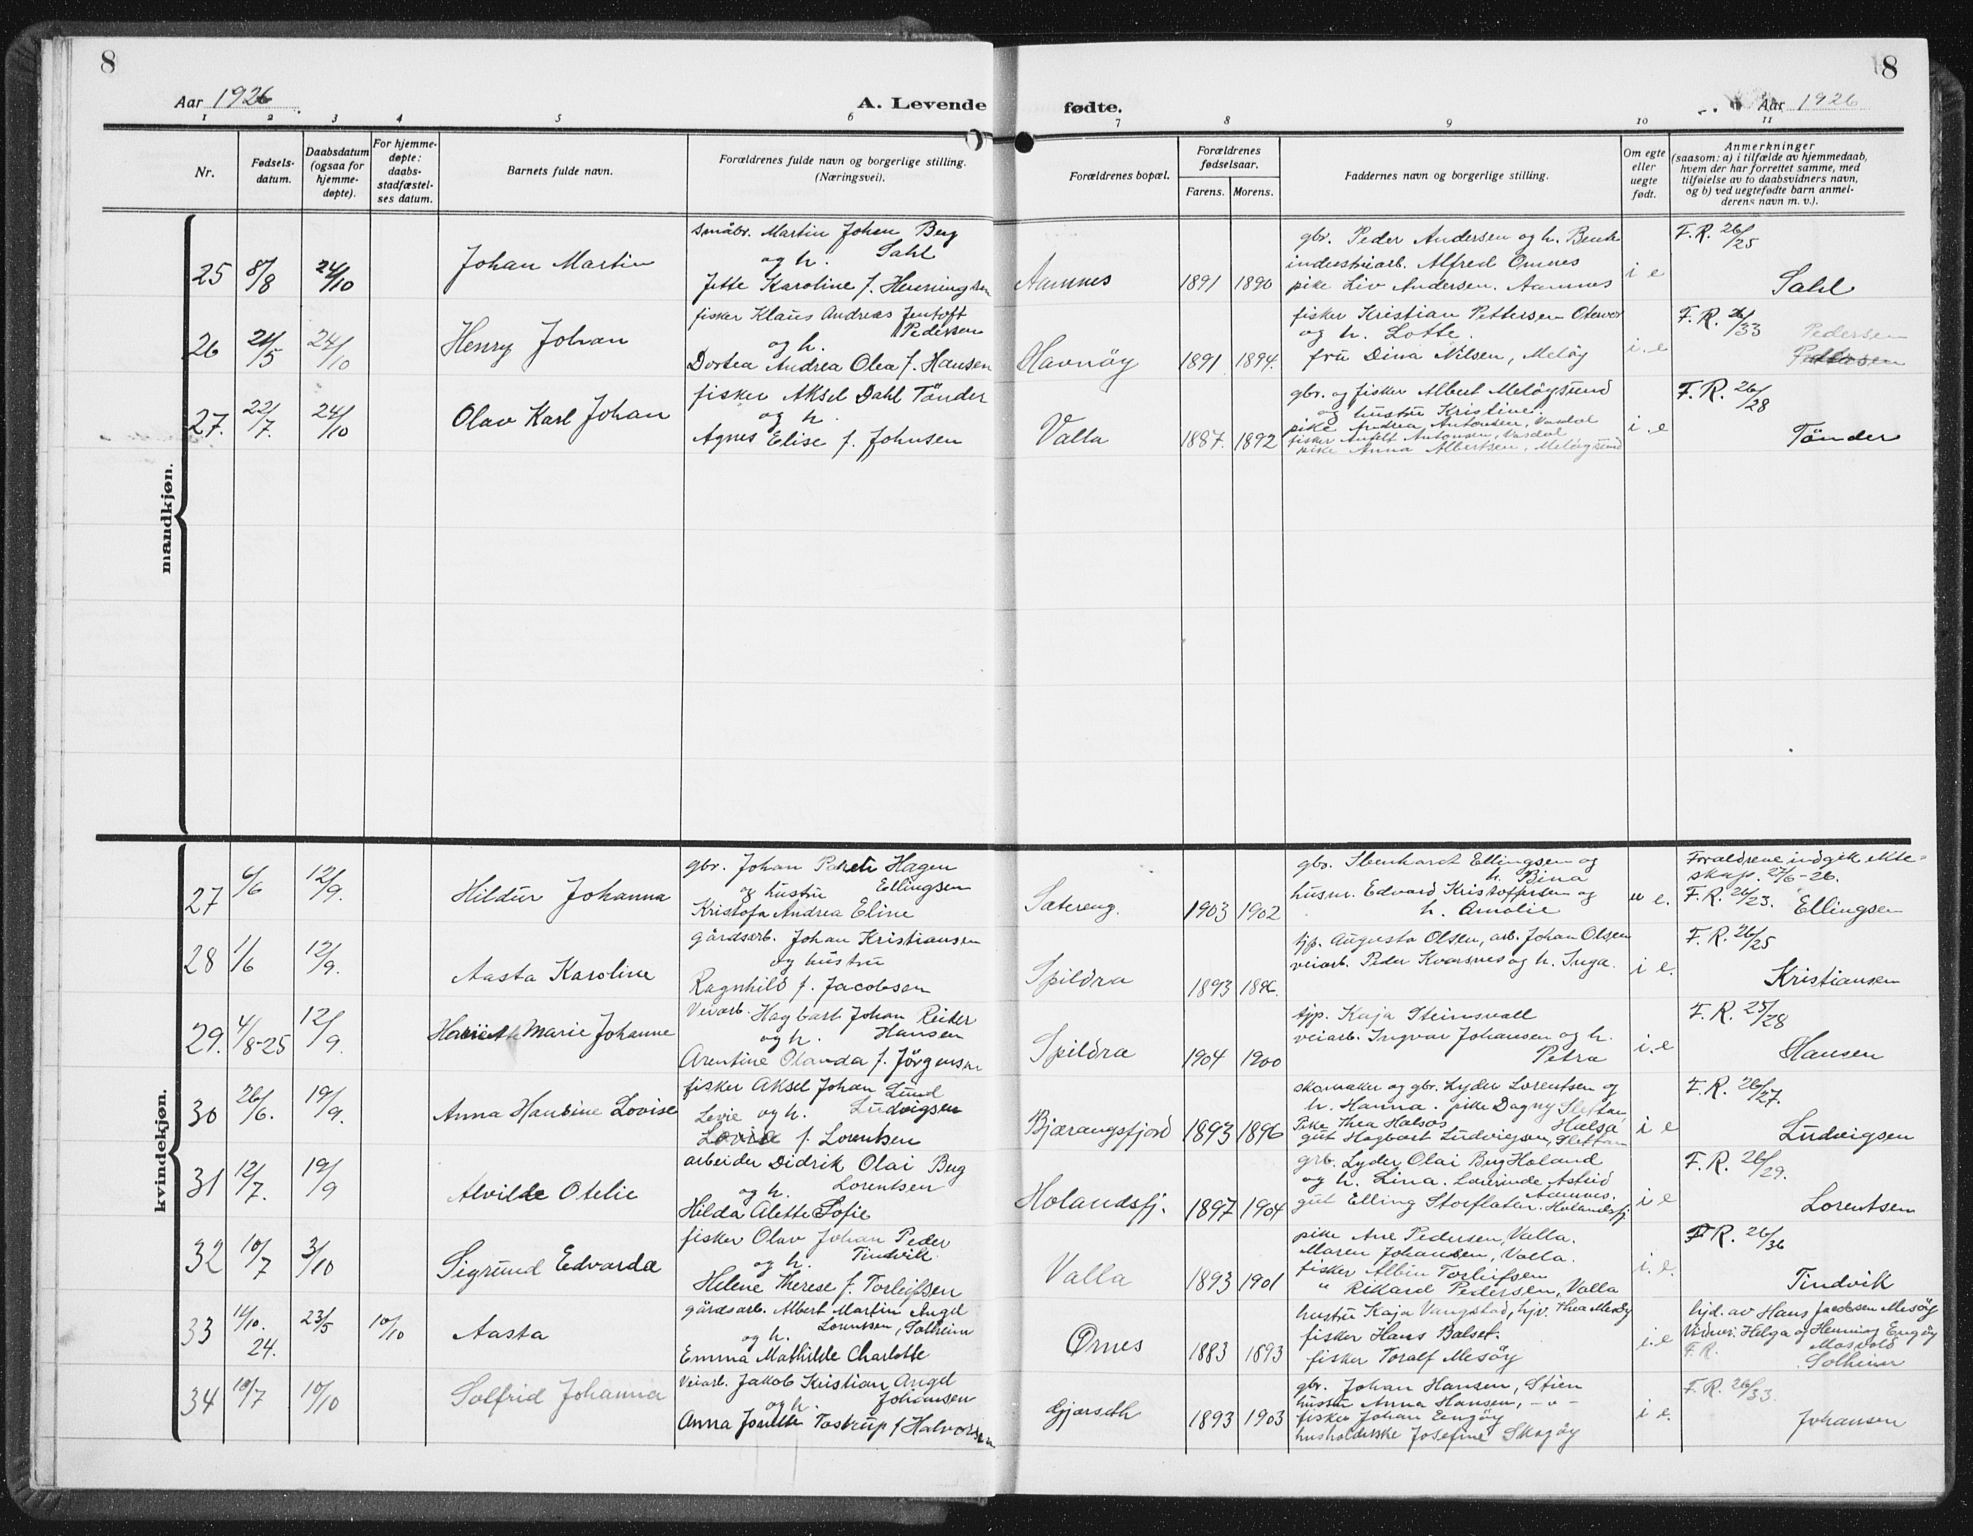 8
8
Aar 1926.
A. Levende
fødte.
Aar 1926
1 2 3 4 5 6 7 8 9 10 11
Nr.
Fødsels-
datum.
Daabsdatum
(ogsaa for
hjemme-
døpte).
For hjemme-
døpte:
daabs-
stadfæstel-
ses datum.
Barnets fulde navn.
Forældrenes fulde navn og borgerlige stilling.
(Næringsvei).
Forældrenes bopæl.
Forældrenes
fødselsaar.
Farens. Morens.
Faddernes navn og borgerlige stilling.
Om egte
eller
uegte
født.
Anmerkninger
(saasom: a) i tilfælde av hjemmedaab,
hvem der har forrettet samme, med
tilføielse av to daabsvidners navn,
og b) ved uegtefødte barn anmel-
derens navn m. v.).
mandkjøn.
25 8/8 24/10
Johan Martin
småbr. Martin Johan Berg
og h. Sahl
Jette Karoline f. Henningsen
Aamnes
1891 1890
gbr. Peder Andersen og h. Benk
industriarb. Alfred Ømnes
pike Liv Andersen. Aamnes
i e
F. R. 26/25
Sahl
26 21/5 24/10
Henry Johan
fisker Klaus Andreas Jentoft
og h. Pedersen
Dortea Andrea Olea f. Hansen
Havnöy
1891 1894.
fisker Kristian Pettersen Otervær
og h. Lotte.
fru Dina Nilsen, Melöy
i. e
F. R. 26/33
Pedersen
27. 22/7. 24/10
Olav Karl Johan
fisker Aksel Dahl Tönder
og h.
Agnes Elise f. Johnsen
Valla
1887. 1892
gbr. og fisker Albert Melöysund
og hustru Kristine.
pike Andrea Antonsen, Vasdal
fisker Antonsen, Vasdal
pike Anna Albertsen, Melöysund
i. e
F. R. 26/28
Tönder
kvindekjøn.
27 6/6 12/9.
Hildur Johanna
gbr. Johan Hagen
og hustru Ellingsen
Kristofa Andrea Eline
Sætereng.
1903 1902
gbr. Stenhardt Ellingsen og
h. Bina
husm. Edvard Kristoffersen og
h. Amalie
u e.
Forældrene indgik ekte-
skap. 27/6-26.
F. R. 26/23. Ellingsen
28 1/6 12/9.
Aasta Karoline
gårdsarb. Johan Kristiansen
og hustru
Ragnhild f. Jacobsen
Spildra
1893 1896.
tjp. Augusta Olsen, arb. Johan Olsen
veiarb. Peder Kvarsnes og h. Inga.
i e.
F. R. 26/25
Kristiansen
29. 4/8-25 12/9.
Marie Johanne
Veiarb. Hagbart Johan Reider
og h. Hansen
Arentine Olavda f. Jörgensen
Spildra
1904 1900
tjp. Kaja Steinsvall
veiarb. Ingvar Johansen og h.
Petra
i. e
F. R. 25/28
Hansen
30 26/6. 19/9.
Anna Hansine Lovise
fisker Aksel Johan Lund
Levie og h. Ludvigsen
f. Lorentsen
Bjærangsfjord
1893 1896
skomaker og gbr. Lyder Lorentsen og
h. Hanna. pike Dagny
Pike Thea Halsos Halsa
gut Hagbart Ludvigsen,
i e
F. R. 26/27.
Ludvigsen
31 12/7. 19/9
Alvilde Otelie
arbeider Didrik Olai Berg
og h. Lorentsen
Hilda Alette Sofie
Holandsfj.
1897 1904
grb. Lyder Olai Berg Holand
og h. Lina. Laurinde Astrid
Aamnes.
gut Elling Storflaten. Holandsfj
i e
F. R. 26/29.
Lorentsen
32 10/7 3/10
Sigrund Edvarda
fisker Olav Johan Peder
og h. Tindvik
Helene Therese f. Torleifsen
Valla
1893 1901
pike Ane Pedersen, Valla.
Maren Johansen, Valla.
fisker Albin Torleifsen
" Rikard Pedersen, Valla
i. e.
F R. 26/36
Tindvik
33 14/10. 24. 23/5 10/10
Aasta
gårdsarb. Albert Martin Angel
og h. Lorentsen, Solheim
Emma Mathilde Charlotte
Ørnes
1883 1893
hustru Kaja Vangstad, hjv. Thea Mesöy
fisker Hans Balset.
fisker Toralf Mesöy
i. e
hjd. av Hans Jacobsen Mesöy
Vidner: Helga og Henning Engöy
F. R. Mosvold
Solheim
34 10/7 10/10
Solfrid Johanna
Veiarb. Jakob Kristian Angel
og h. Johansen
Anna Tostrup f Halvorsen
Gjærseth
1893 1903
gbr. Johan Hansen, Stien
hustru Anna Hansen, -"-
fisker Johan Engöy
husholderske Josefine Skogöy
i e.
F. R. 26/33.
Johansen